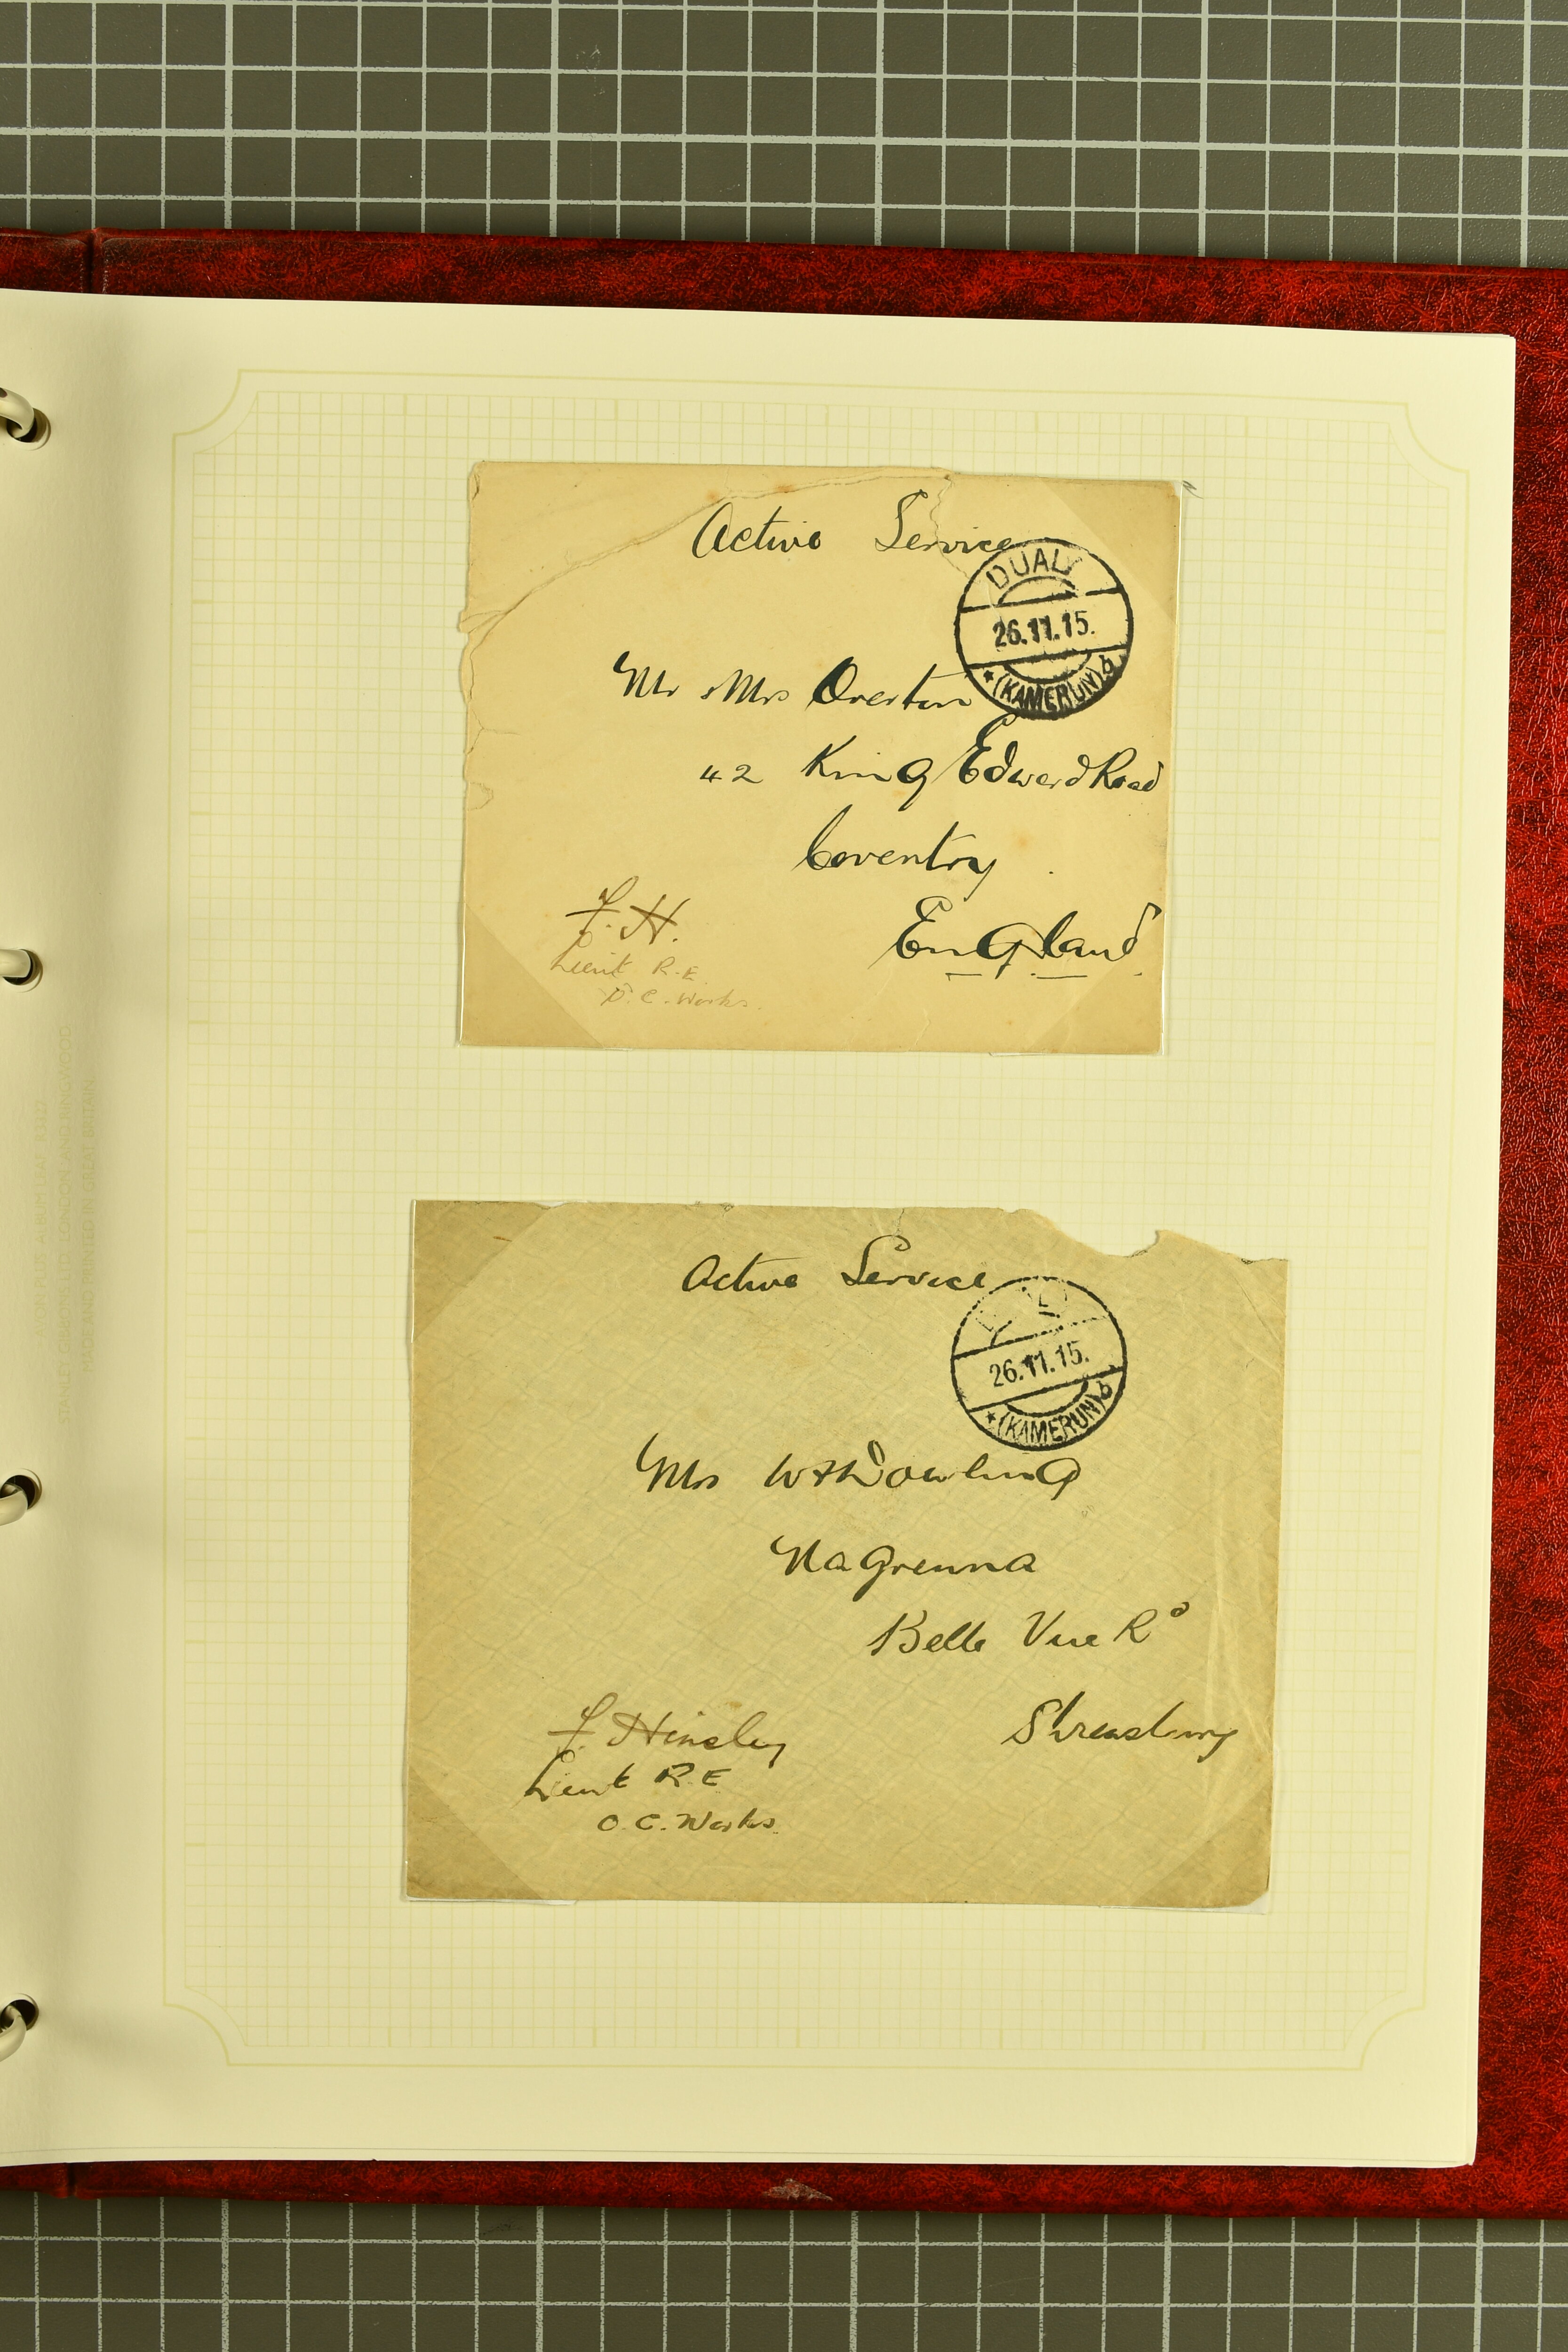 Active Service
DUALA
26.11.15.
*(KAMERUN) b
Mr & Mrs Overton
42 King Edward Road
Coventry
England
F. H.
Lieut R.E.
O. C. Works.
Active Service
26.11.15.
*(KAMERUN) b
Mrs W H Dowling
Nagrenna
Belle Vue Rd
Shrewsbury
F. Hinsley
Lieut R E
O. C. Works.
STANLEY GIBBONS LTD. LONDON AND RINGWOOD
MADE AND PRINTED IN GREAT BRITAIN